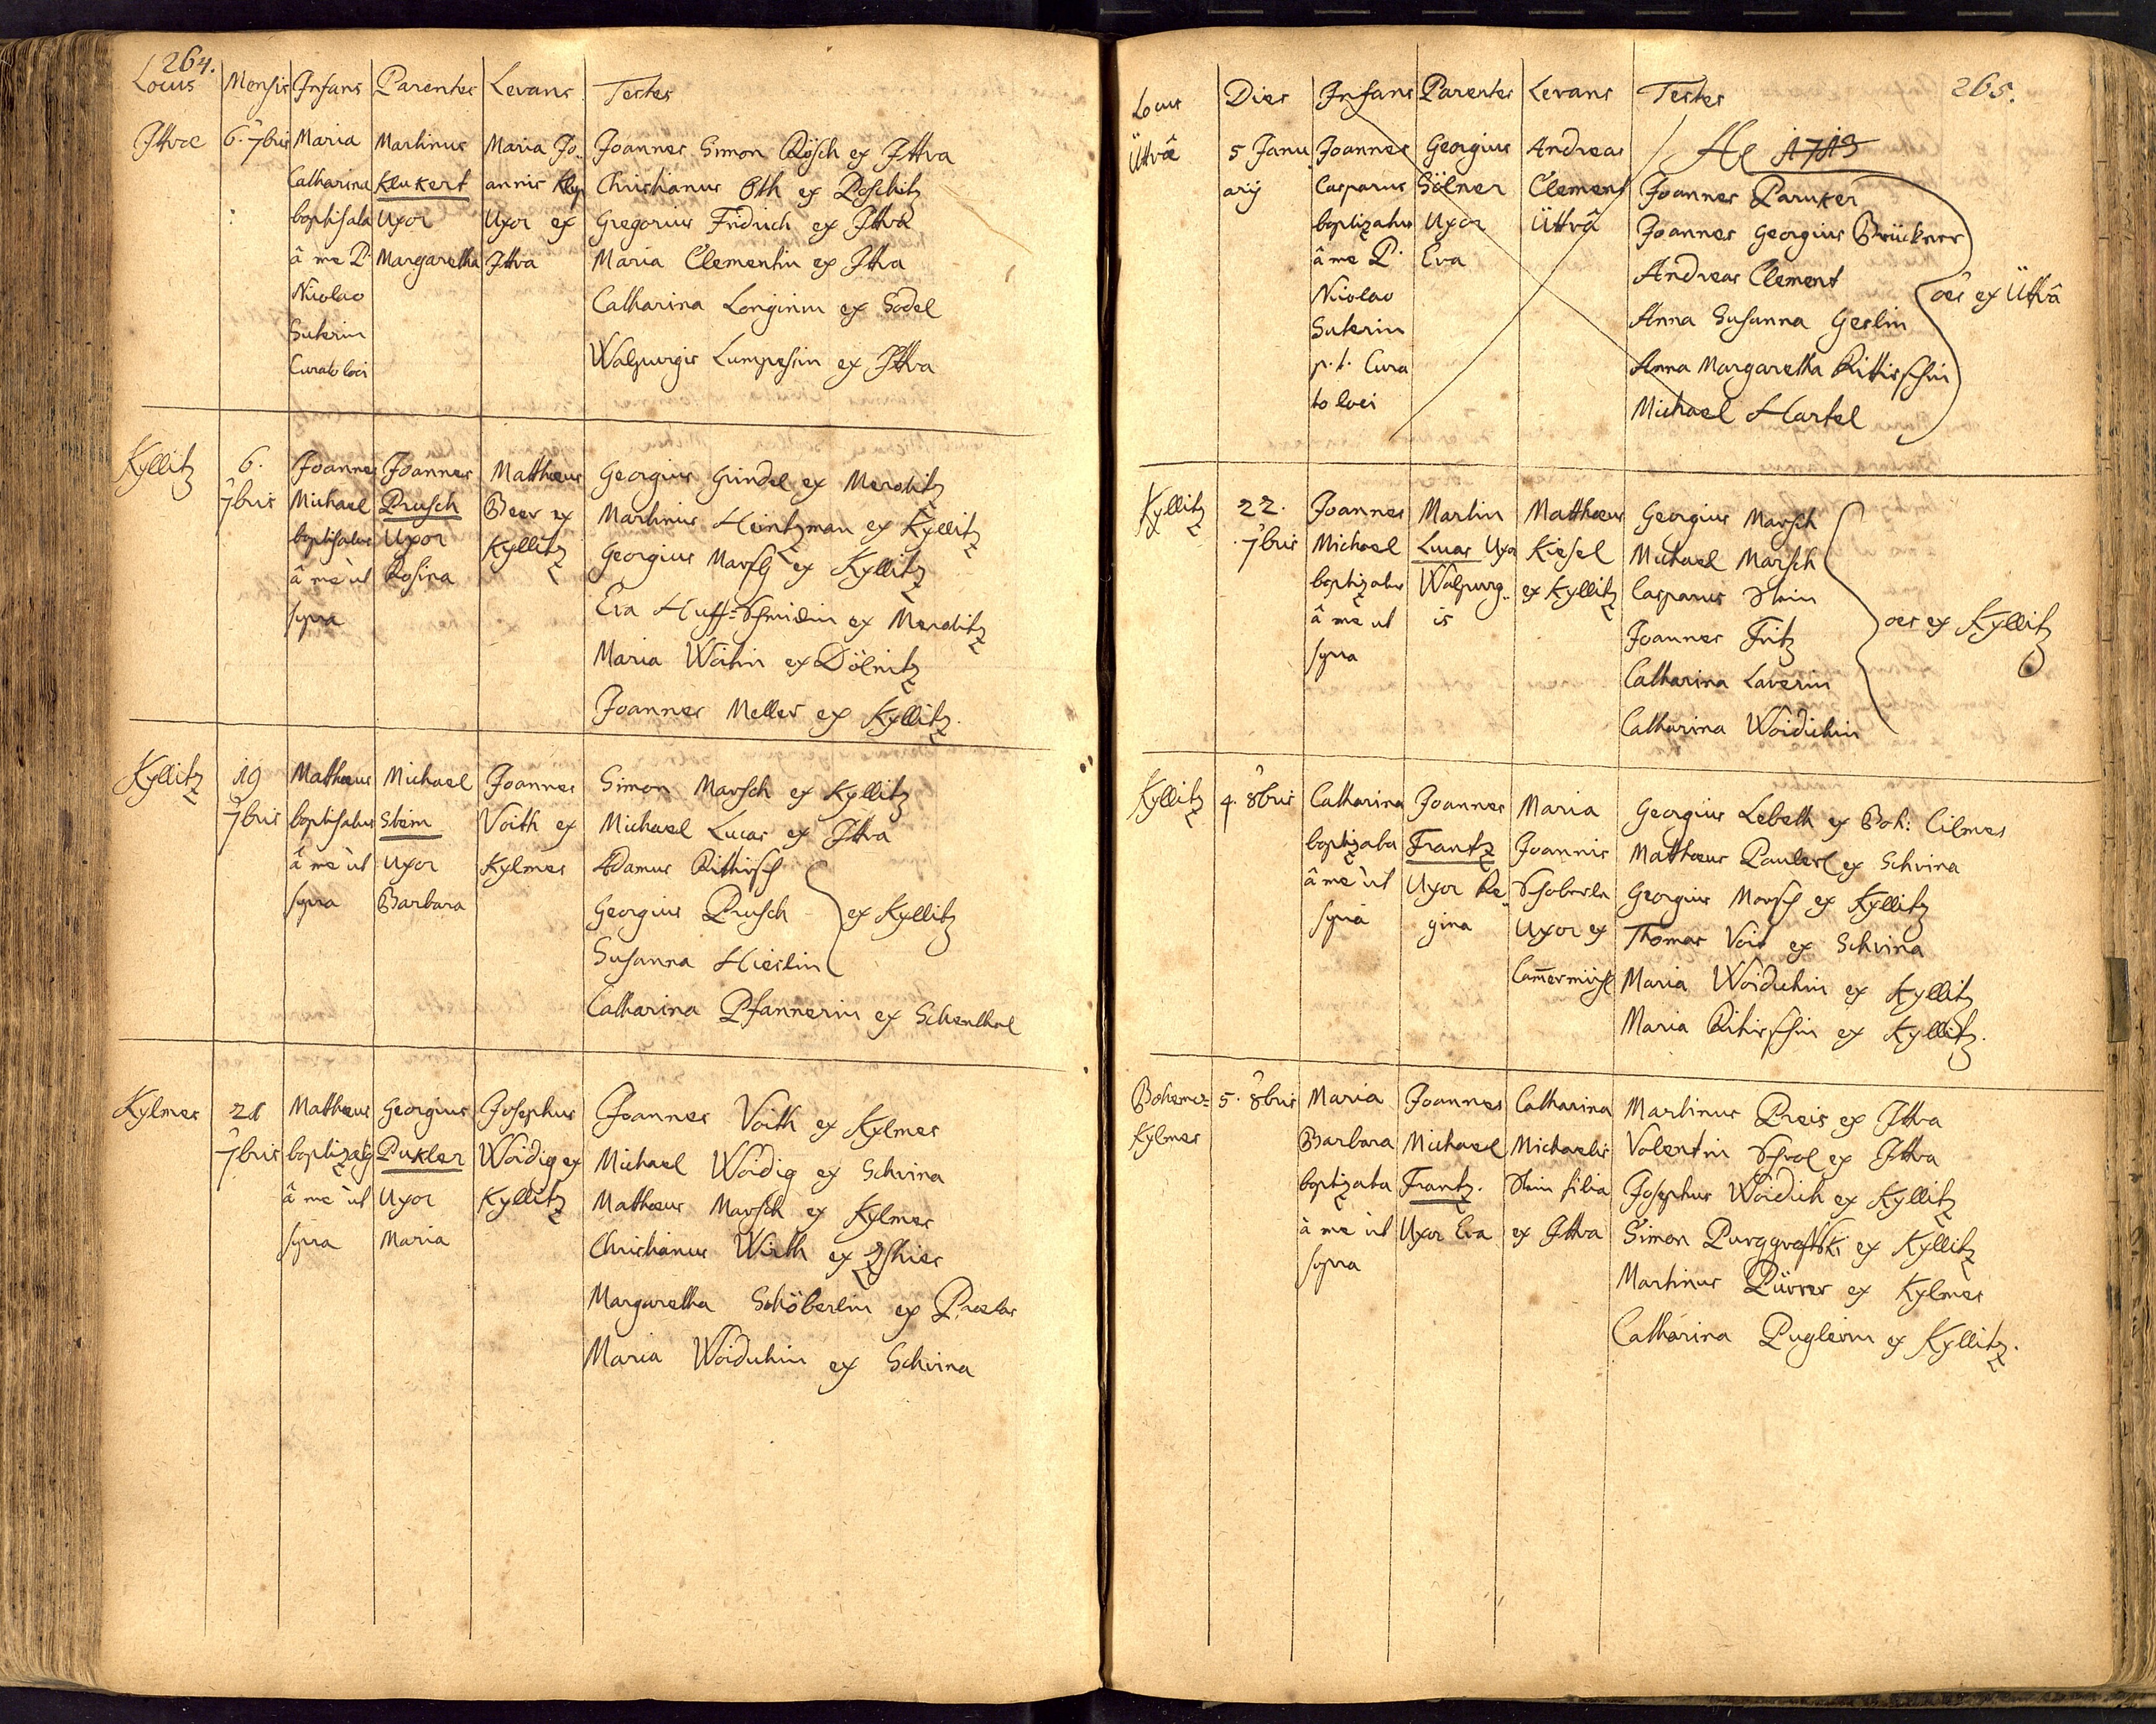 264.
Locus Mensis Infans Parentes Levans Testes
Ittvae 6. 7bris Maria Martinus Maria Jo„ Joannes Simon Rösch ex Ittva
Catharina Klukert annis Christianus Oth ex Poschitz
baptisata Uxor Uxor ex Gregorius Fridrich ex Ittva
â me P. Margaretha Ittva Maria Clementin ex Ittva
Nicolao Catharina Longinin ex Sodel
Suterin
Curato loci Walpurgis Lumpesin ex Ittva
Kyllitz 6. Joannes Joannes Matthæus Georgius Grindel ex Meroditz
7bris Michael Prusch Beer ex Martinus Heintzman ex Kyllitz
baptisatus Uxor Kyllitz Georgius Marsch ex Kyllitz
â me ùt Rosina Eva Huff-Schmidin ex Meroditz
supra Maria Woitin ex Dölnitz
Joannes Meller ex Kyllitz.
Kyllitz 19 Mathæus Michael Joannes Simon Marsch ex Kyllitz
7bris baptisatus Stein Voith ex Michael Lucas ex Ittva
â me ùt Uxor Kylmes Adamus Rithirsch
supra Barbara Georgius Prusch ex Kyllitz
Susanna Hierlin
Catharina Pfannerin ex Schenthal
Kylmes 21 Mathæus Georgius Josephus Joannes Voith ex Kylmes
7bris baptizatg Pukler Woidig ex Michael Woidig ex Schvina
â me ùt Uxor Kyllitz Mathæus Marsch ex Kylmes
supra Maria Christianus Wirth ex
Margaretha Schöberlin ex
Maria Woiduhin ex Schvina
265.
Locus Dies Infans Parentes Levans Testes
Üttvâ 5 Janu Joannes Georgius Andreas Ao 1713
arij Casparus Sölner Clement Joannes Paruker
baptizatus Uxor Üttvâ Joannes Georgius Brückner
â me P. Eva Andreas Clement
Nicolao oes ex Üttvâ
Suterin Anna Susanna Gerlin
p. t. Cura Anna Margaretha Rittirschin
to loci Michael Hartel
Kyllitz 22. Joannes Martin Matthæus Georgius Marsch
7bris Michael Lucas Uxor Kiesel Michael Marsch
baptizatus Walpurg„ ex Kyllitz Casparus Stein
â me ut is Joannes Fritz oes ex Kyllitz
supra Catharina Laverin
Catharina Woiduhin
Kyllitz 4. 8bris Catharina Joannes Maria Georgius Lebeth ex Boh: Cilmes
baptizata Frantz Joannis Matthæus Pauler ex Schvina
â me ùt Uxor Re„ Schoberla Georgius Marsch ex Kyllitz
supra gina Uxor ex Thomas Voit ex Schvina
Maria Woiduhin ex Kyllitz
Maria Ritirschin ex Kyllitz.
Bohemo= 5. 8bris Maria Joannes Catharina Martinus Preis ex Ittva
Kylmes Barbara Michael Michaelis Valentin ex Ittva
baptizata Frantz. Stein filia Josephus Woidich ex Kyllitz
à me ùt Uxor Eva ex Ittva Simon ex Kyllitz
supra Martinus Pürrer ex Kylmes
Catharina Puglerin ex Kyllitz.